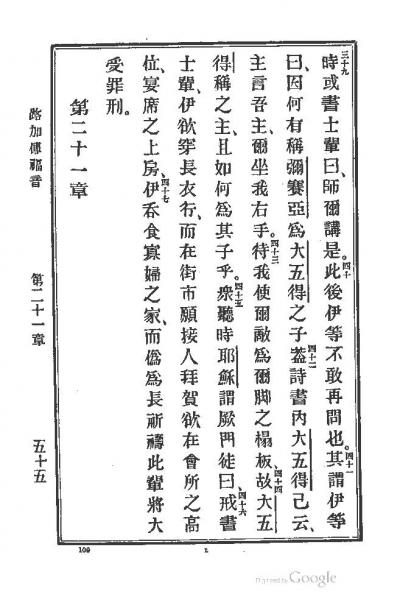 三十九時或書士輩曰、師爾講是。四十此後伊等不敢再問也。四十一其謂伊等
曰、因何有稱彌賽亞爲大五得之子。四十二蓋詩書內大五得己云、
主言吾主、爾坐我右手。四十三待我使爾敵爲爾脚之榻板、四十四故大五
得稱之主、且如何爲其子乎。四十五衆聽時耶穌謂厥門徒曰、四十六戒書
士輩、伊欲穿長衣行、而在街市願接人拜賀欲在會所之高
位、宴席之上房、四十七伊吞食寡婦之家、而僞爲長祈禱此輩將大
受罪刑。
第二十一章
路加傳福音 第二十一章 五十五
109 L
Digitized by Google